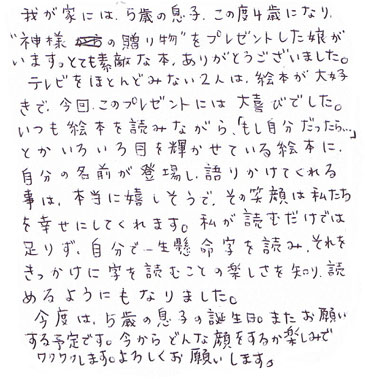 我が家には、5歳の息子、この度4歳になり、
"神様の贈り物"をプレゼントした娘が
いますっとても素敵な本、ありがとうございました。
テレビをほとんどみない2人は、絵本が大好
きで、今回、このプレゼントには大喜びでした。
いつも絵本を読みながら、「もし自分だったら…」
とかいろいろ目を輝かせている絵本に、
自分の名前が登場し、語りかけてくれる
事は、本当に嬉しそうで、その笑顔は私たち
を幸せにしてくれます。私が読むだけでは
足りず、自分で一生懸命字を読み、それを
きっかけに字を読むことの楽しさを知り、読
めるようにもなりました。
今度は、5歳の息子の誕生日。またお願い
する予定です。今からどんな顔をするか楽しみで
ワクワクします。よろしくお願いします。